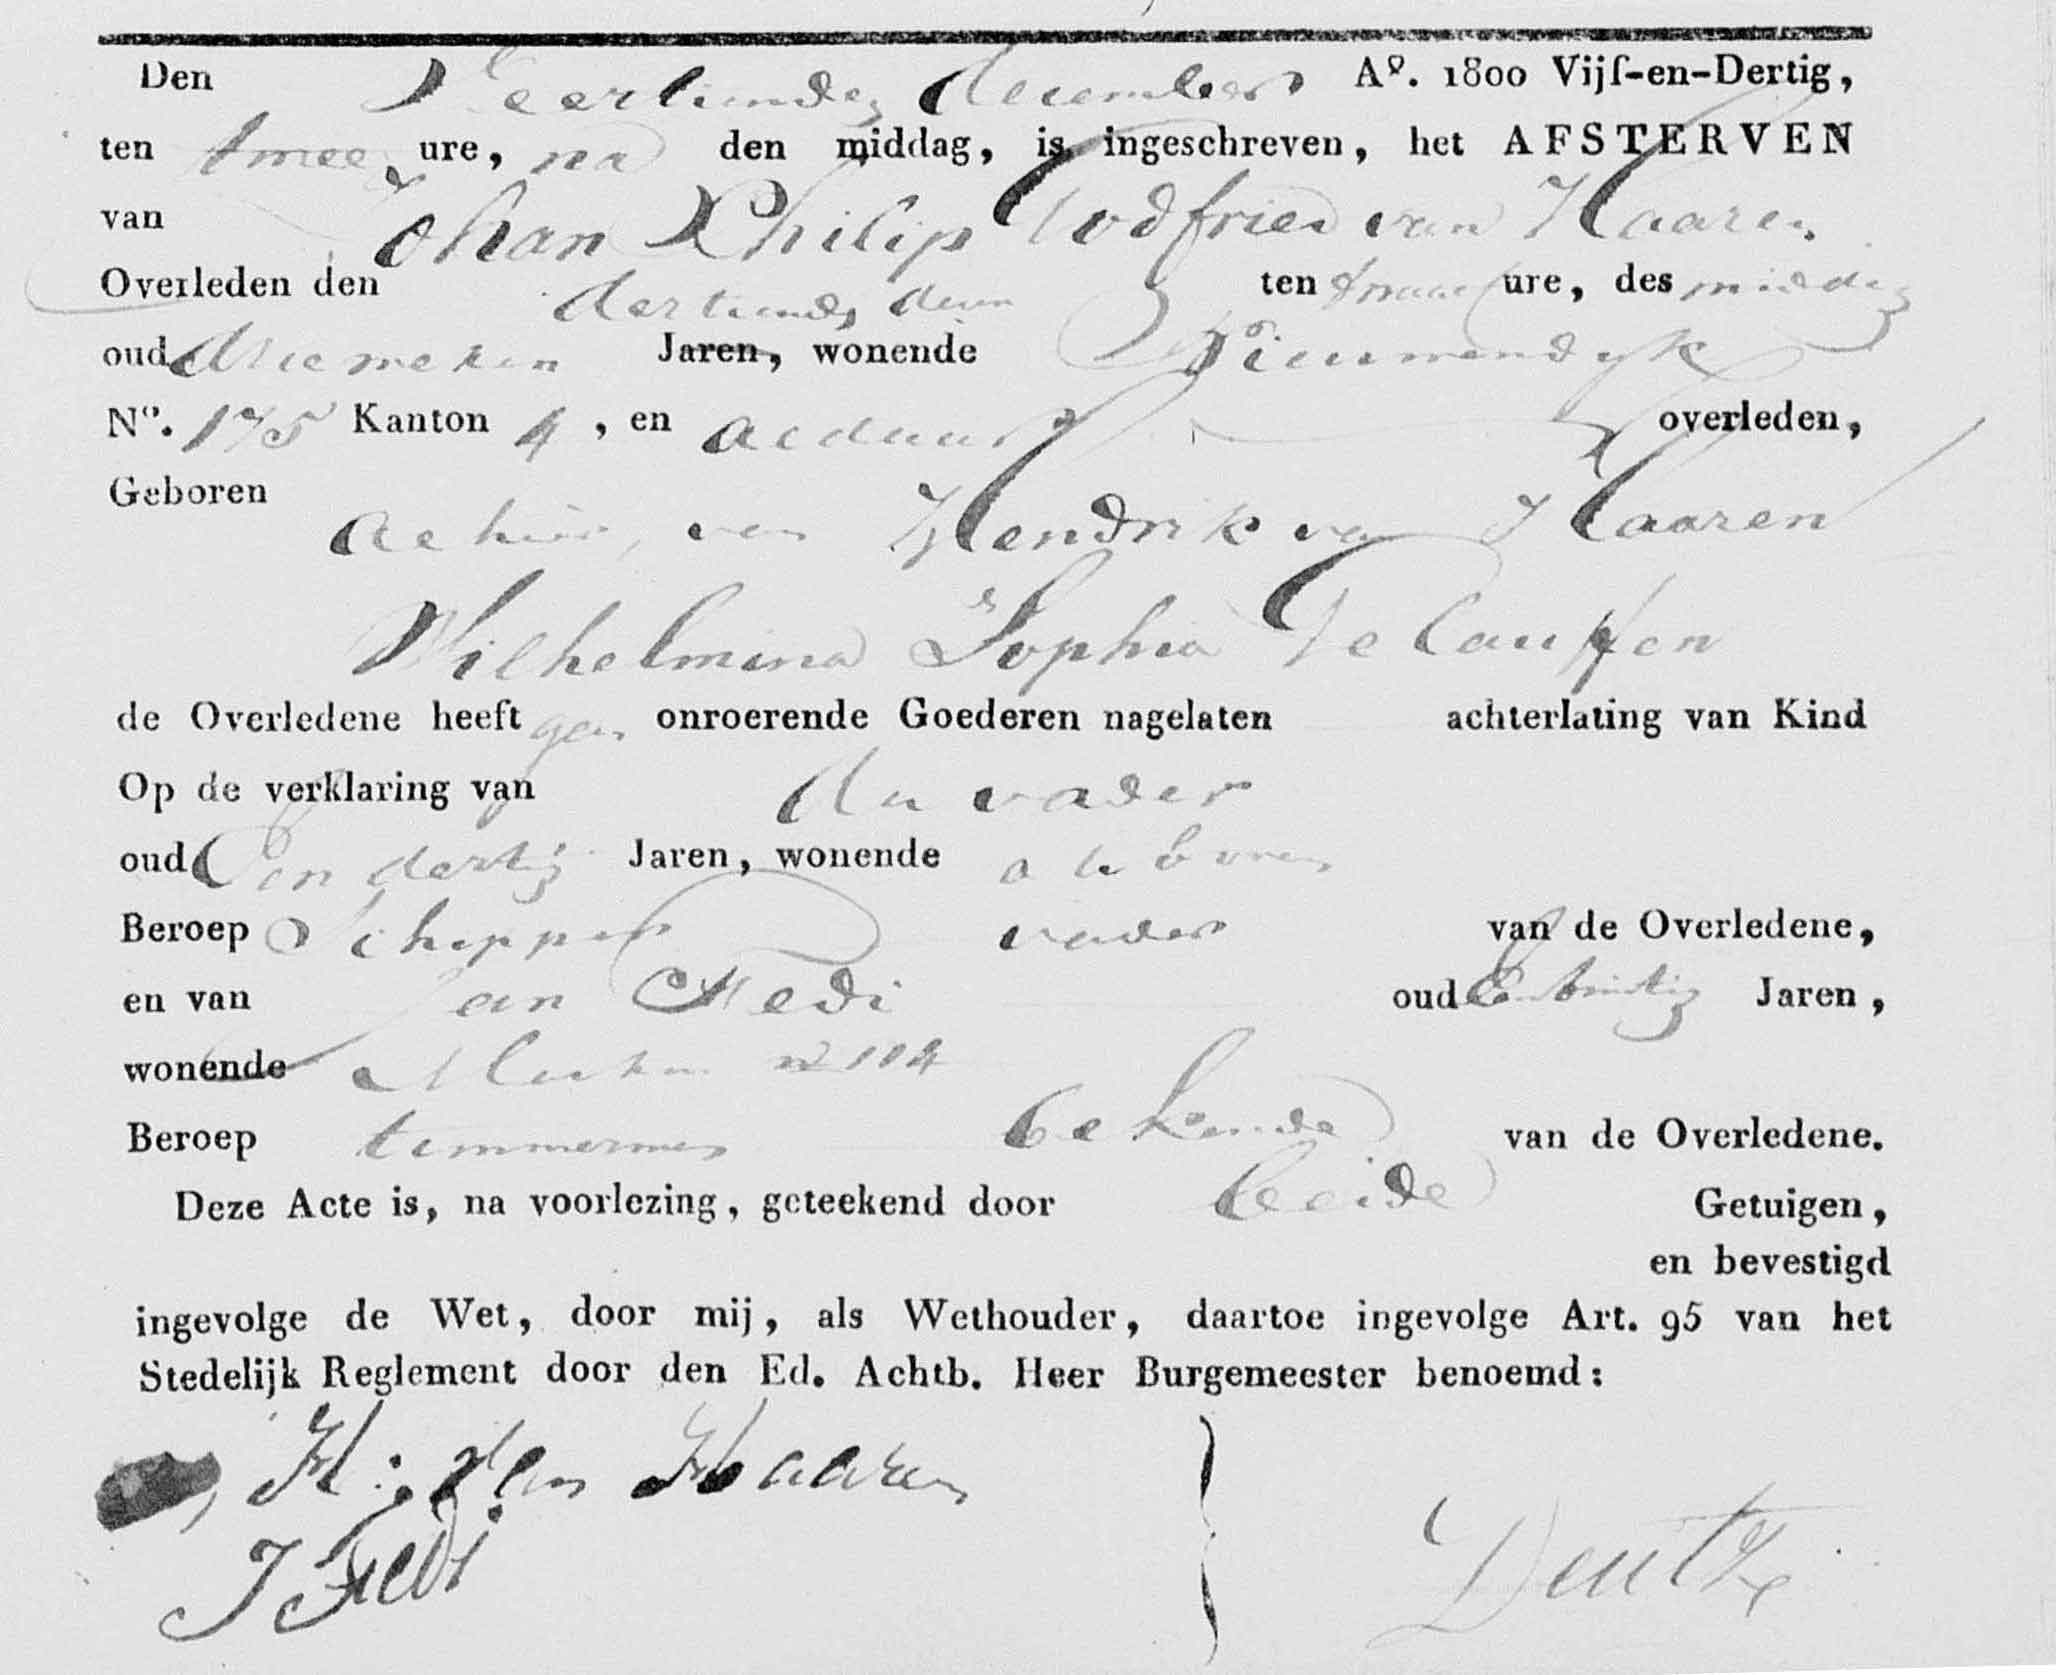 Den Veertiende december A°. 1800 Vijf-en-Dertig,
ten twee ure, na den middag, is ingeschreven, het AFSTERVEN
van Johan Philip Godfried van Haaren
Overleden den dertiende dezer ten twaalf ure, des middag
oud drie weken Jaren, wonende Nieuwendyk
N°. 175 Kanton 4, en aldaar overleden,
Geboren alhier, van Hendrik van Haaren
Wilhelmina Sophia
de Overledene heeft geen onroerende Goederen nagelaten achterlating van Kind
Op de verklaring van den vader
oud Een dertig Jaren, wonende als boven
Beroep Schipper vader van de Overledene,
en van Jan Fredi oud Jaren,
wonende N 114
Beroep timmerman bekende van de Overledene.
Deze Acte is, na voorlezing, geteekend door beide Getuigen,
en bevestigd
ingevolge de Wet, door mij, als Wethouder, daartoe ingevolge Art. 95 van het
Stedelijk Reglement door den Ed. Achtb. Heer Burgemeester benoemd:
H: Van Haaren
J Fredi
Deutz